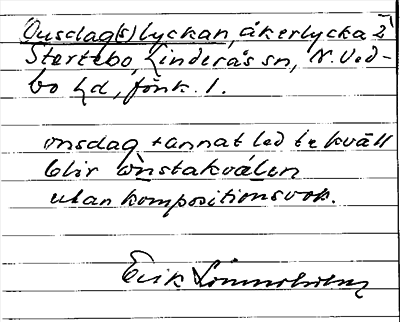 Onsdag(s)lyckan, åkerlycka 2
Stertebo, Linderås sn, N. Ved-
bo hd, Jönk. l.
onsdag + annat led t ex kväll
blir ònstakvälen
utan kompositionsvok.
Erik Linnhohm